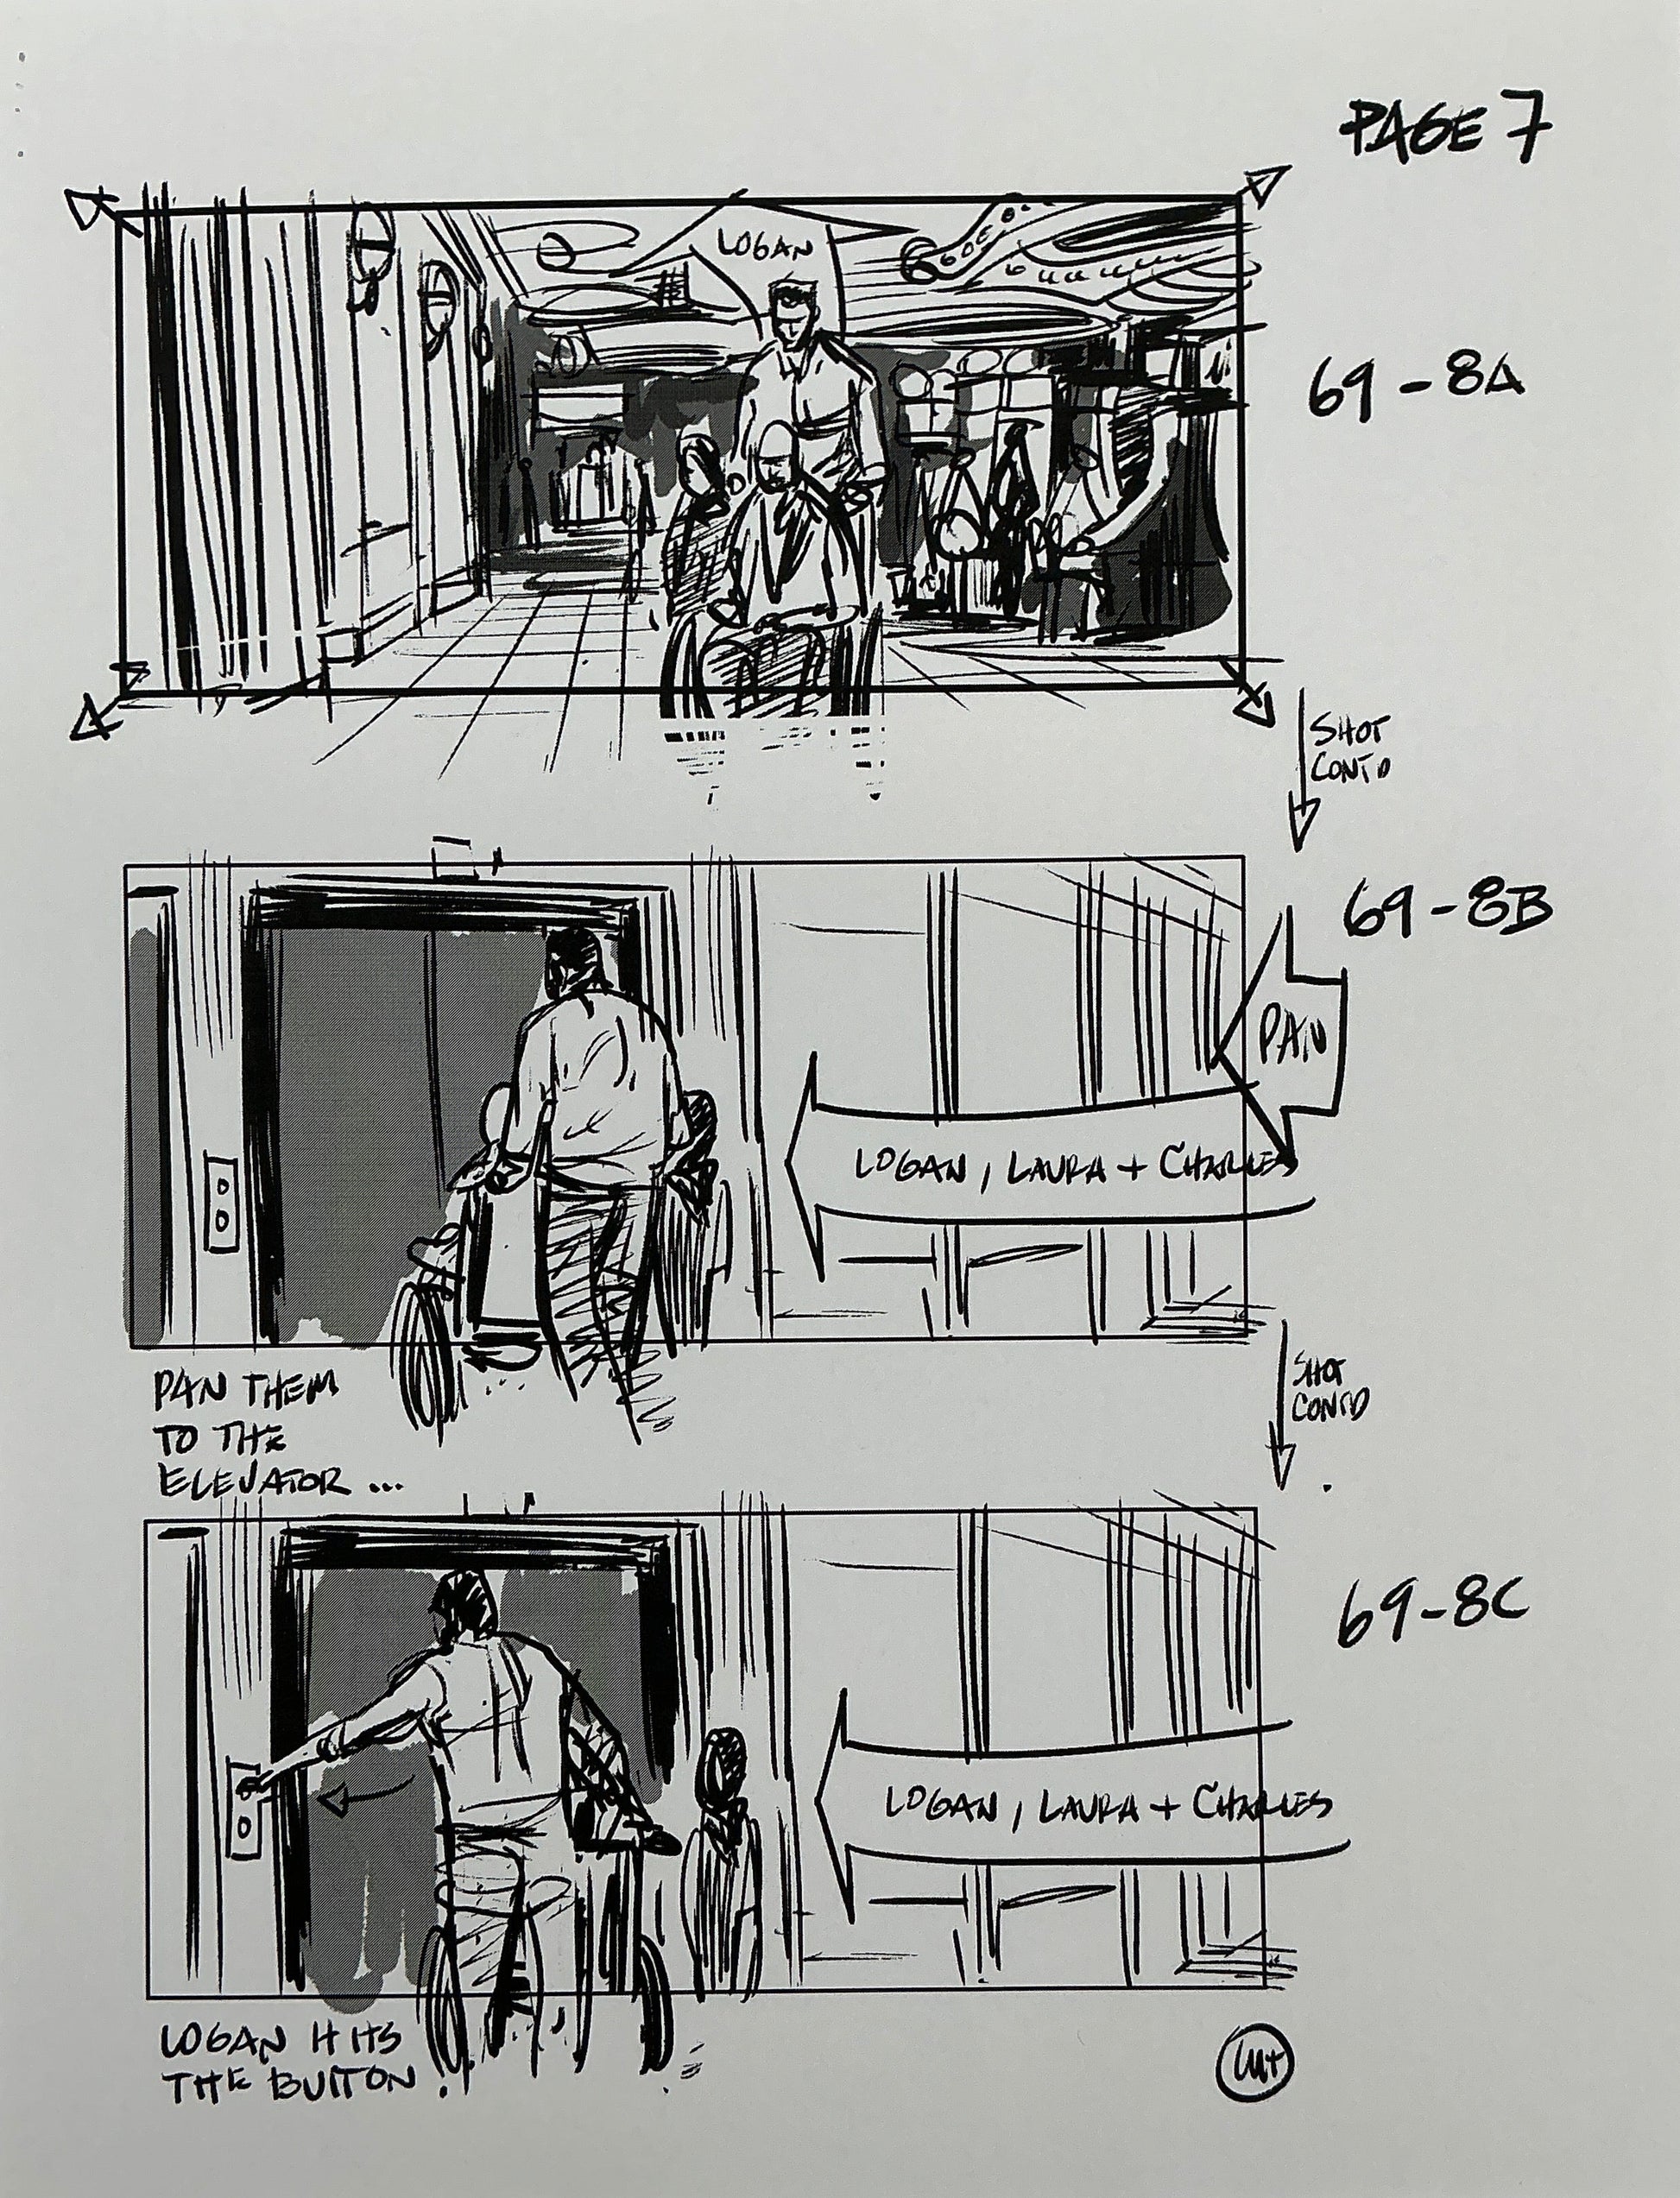 PAGE 7
LOGAN
69-8A
SHOT
CONT'D
69-8B
PAN
LOGAN, LAURA + CHARLES
PAN THEM
TO THE
ELEVATOR...
SHOT
CONT'D
69-8C
LOGAN, LAURA + CHARLES
LOGAN HITS
THE BUTTON.
CUT